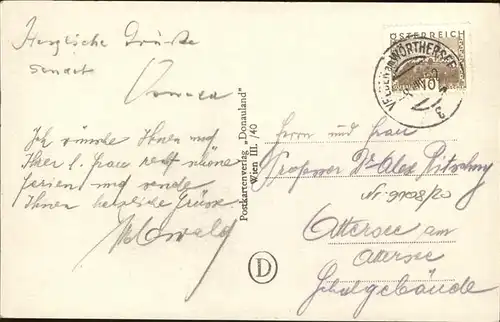 Herzliche Grüsse
sendet
Ich wünsche Ihnen und
Ihrer l. Frau recht schöne
Ferien und sende
Ihnen herzliche Grüsse
Postkartenverlag „Donauland"
Wien III./40
D
ÖSTERREICH
VELDEN AM WÖRTHERSEE
10
Herrn und Frau
Professor Dr Alex
Attersee am
Attersee
Schulgebäude